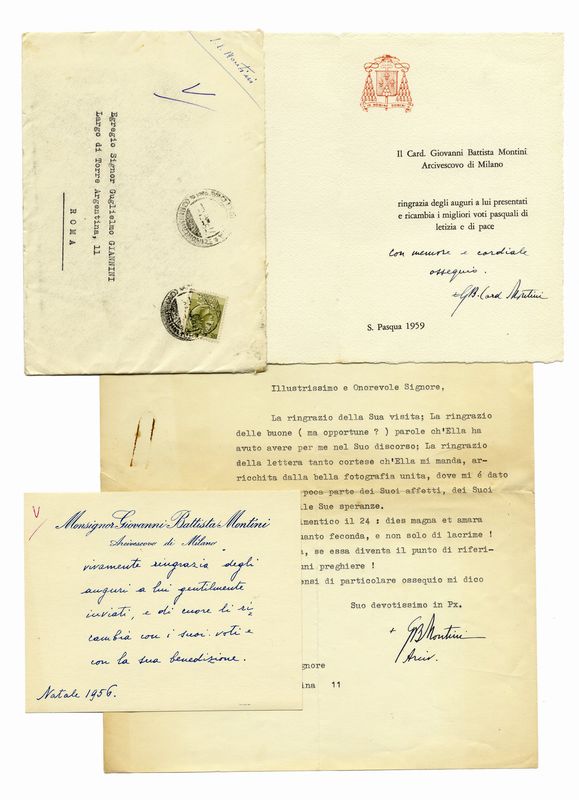 Egregio Signor Guglielmo GIANNINI
Largo di Torre Argentina, 11
ROMA
Il Card. Giovanni Battista Montini
Arcivescovo di Milano
ringrazia degli auguri a lui presentati
e ricambia i migliori voti pasquali di
letizia e di pace
con memore e cordiale
ossequio.
+ GB. Card Montini
S. Pasqua 1959
Illustrissimo e Onorevole Signore,
La ringrazio della Sua visita; La ringrazio
delle buone ( ma opportune ? ) parole ch'Ella ha
avuto avere per me nel Suo discorso; La ringrazio
della lettera tanto cortese ch'Ella mi manda, ar-
ricchita dalla bella fotografia unita, dove mi é dato
poca parte dei Suoi affetti, dei Suoi
lle Sue speranze.
imentico il 24 : dies magna et amara
uanto feconda, e non solo di lacrime !
a, se essa diventa il punto di riferi-
uni preghiere !
ensi di particolare ossequio mi dico
Suo devotissimo in Px.
+ GB Montini
Arciv.
gnore
ina 11
Monsignor Giovanni Battista Montini
Arcivescovo di Milano
vivamente ringrazia degli
auguri a lui gentilmente
inviati, e di cuore li ri
cambia con i suoi voti e
con la sua benedizione.
Natale 1956.